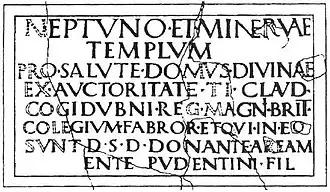 NEPTVNO·ET·MINERVAE
TEMPLVM
PRO·SALVTE·DOMVS·DIVINAE
EX·AVCTORITATE·TI·CLAVD·
COGIDVBNI·REG·MAGN·BRIT·
COLEGIVM·FABROR·ET·QVI·IN·EO
SVNT·D·S·D·DONANTE·AREAM
ENTE PVDENTINI·FIL